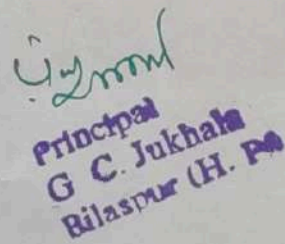 Principal
G C. Jukhala
Bilaspur (H. P.)